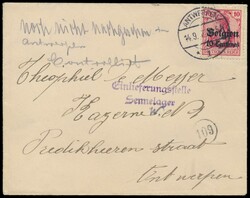 noch nicht nachgesehen
Antwerpen
Controlliert
ANTWERPEN
14.9.
Belgien
10 Centimes
Theophiel de Meyer
Einlieferungsstelle
Sennelager
Kazerne
Predikheeren straat
Antwerpen